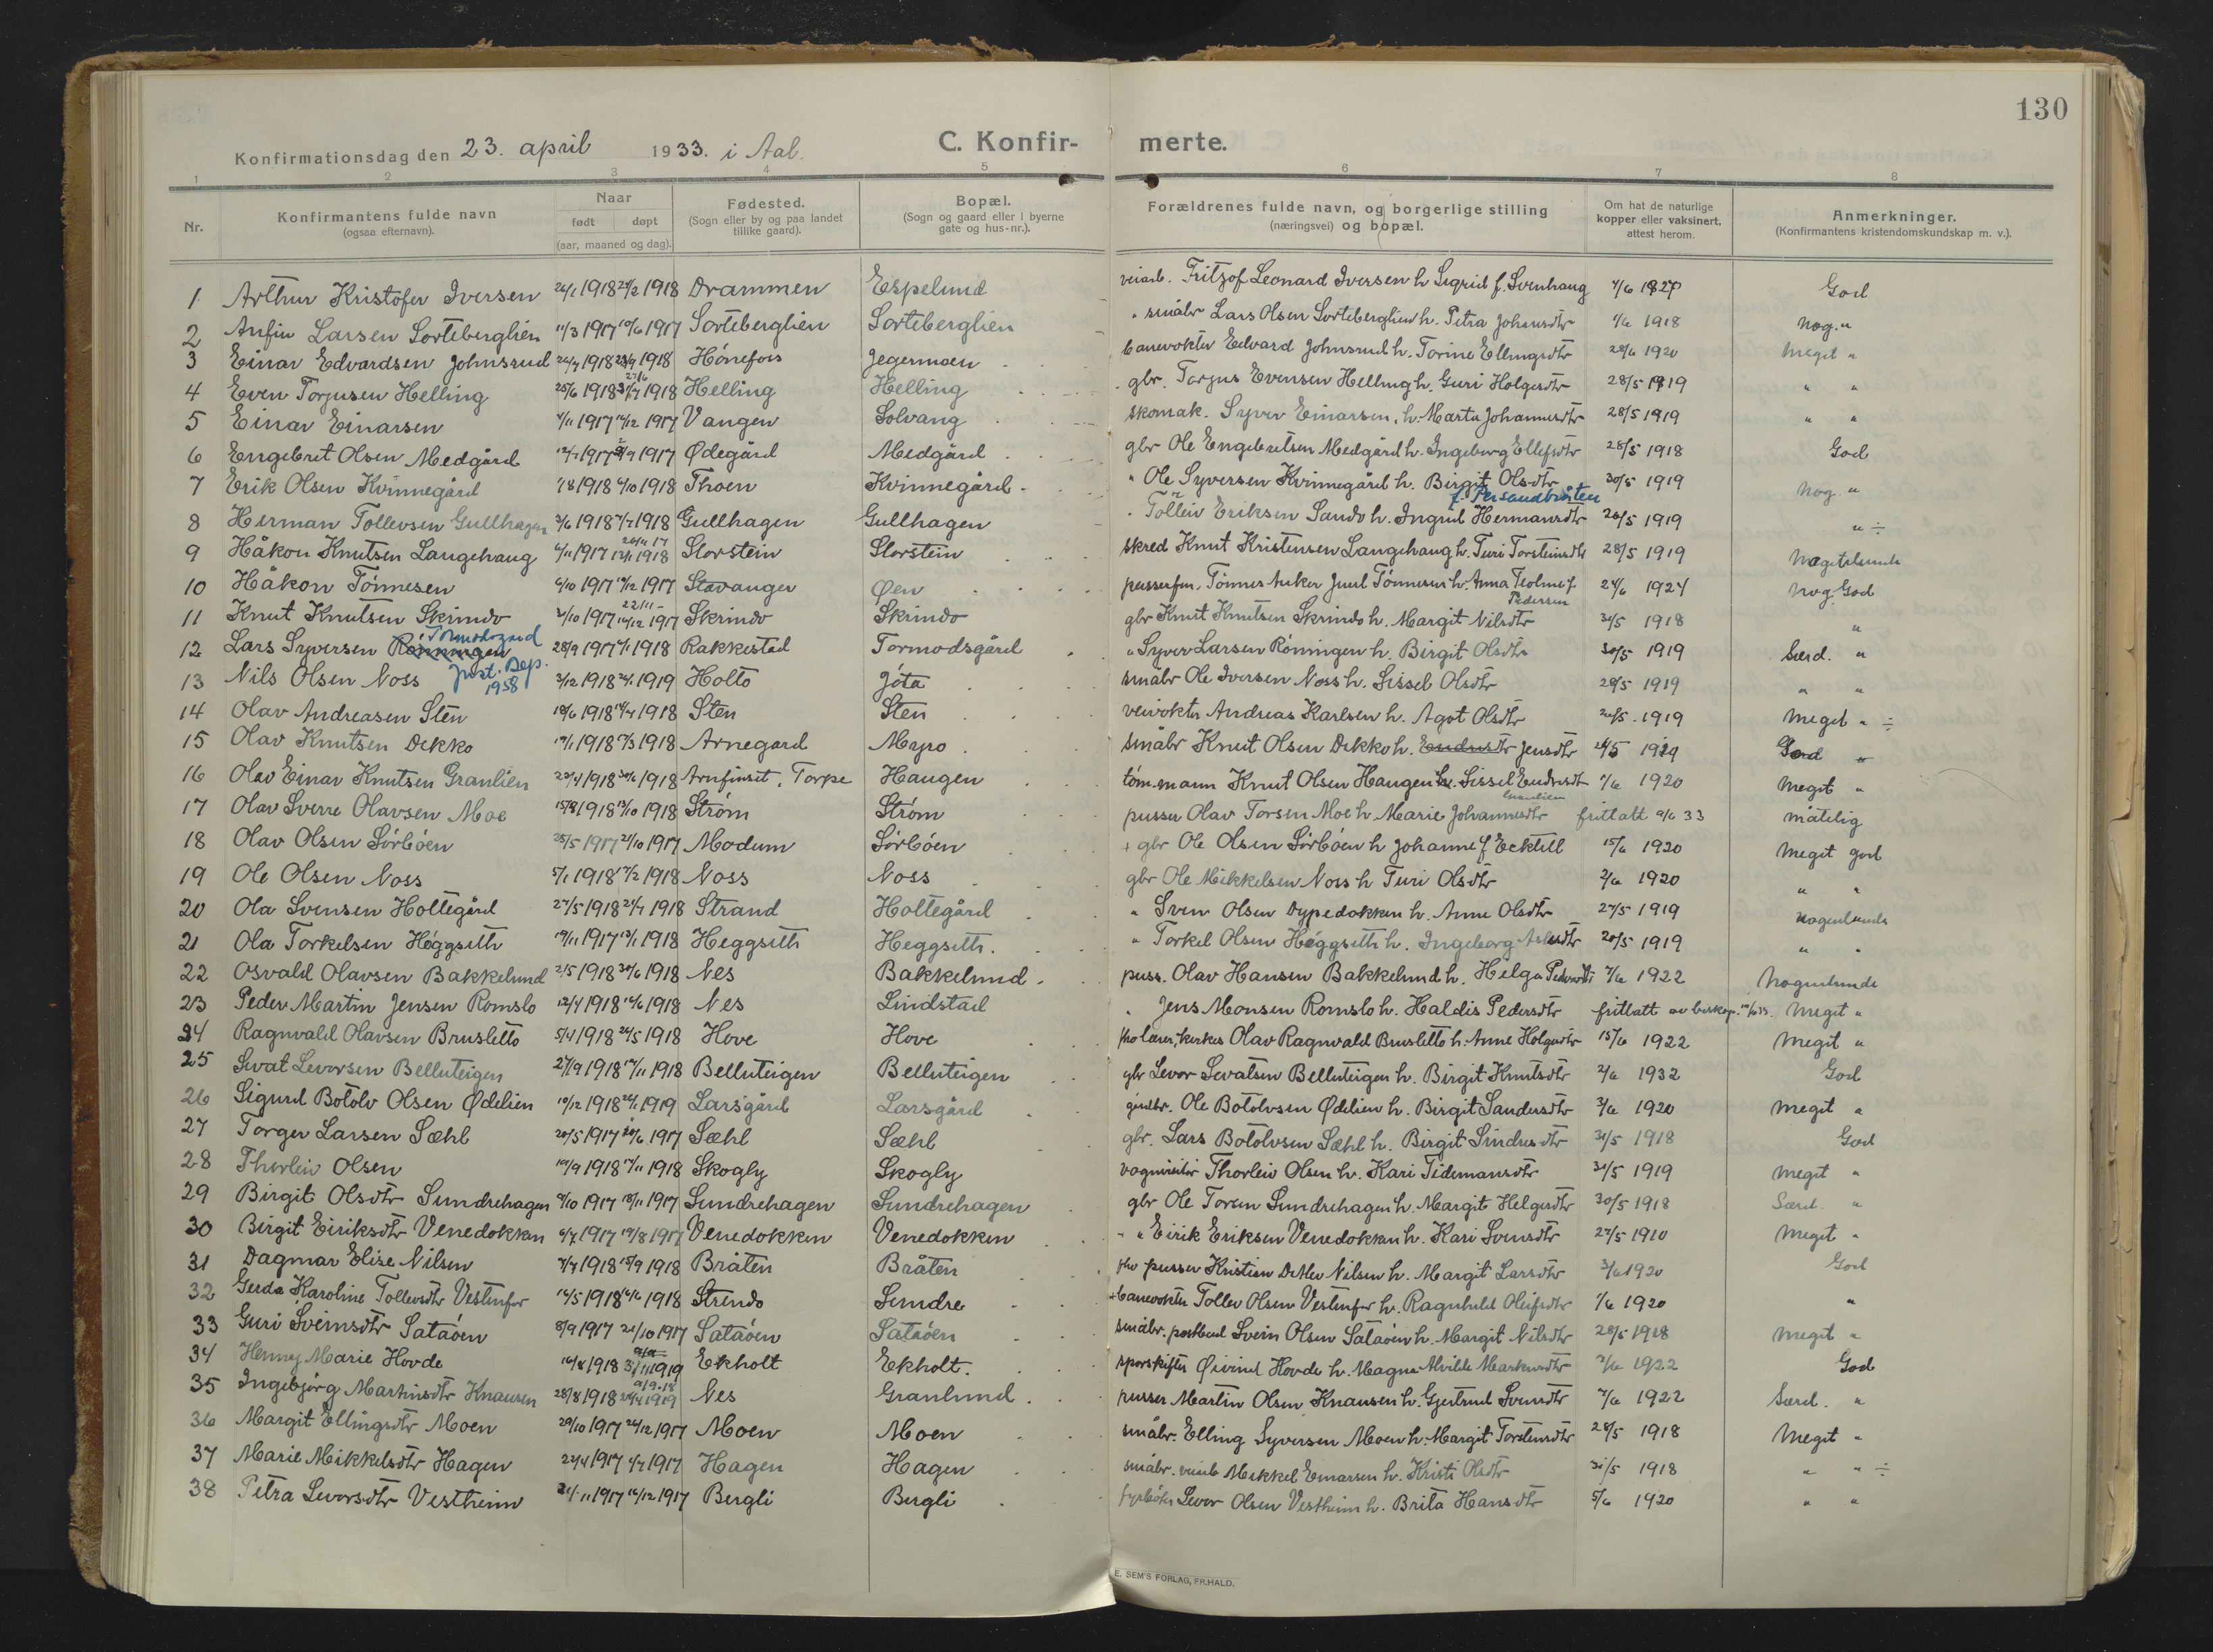 130
Konfirmationsdag den 23. april 1933. i Aal.
C. Konfir- merte.
1 2 3 4 5 6 7 8
Nr.
Konfirmantens fulde navn
(ogsaa efternavn).
Naar
født døpt
(aar, maaned og dag).
Fødested.
(Sogn eller by og paa landet
tillike gaard).
Bopæl.
(Sogn og gaard eller i byerne
gate og hus-nr.).
Forældrenes fulde navn, og borgerlige stilling
(næringsvei) og bopæl.
Om hat de naturlige
kopper eller vaksinert,
attest herom.
Anmerkninger.
(Konfirmantens kristendomskundskap m. v.).
1 Arthur Kristofer Iversen 26/1 1918 1918 Drammen Espelund veiarb. Fritzof Leonard Iversen h. Sigrid f. Svenhaug 1927 God
2 Anfin Larsen Sorteberglien 11/3 1917 10/6 1917 Sorteberglien Sorteberglien " småbr Lars Olsen Sorteberglien h. Petra Johansdtr 1/6 1918 nog. "
3 Einar Edvardsen Johnsrud 1918 1918 Hönefoss Jegermoen banevokter Edvard Johnsrud h. Torine Ellingsdtr 28/6 1920 meget "
4 Even Torjusen Helling 25/6 1918 1918 Helling Helling gbr. Torjus Evensen Helling h. Guri Holgersdtr 28/5 1919 " "
5 Einar Einarsen 1917 1917 Vangen Solvang skomak. Syver Einarsen, h. Marta Johannesdtr 28/5 1919 " "
6 Engebret Olsen Medgård 1917 1917 Ødegård Medgård gbr Ole Engebretsen Medgård h. Ingeborg Ellefsdtr 28/5 1918 God
7 Erik Olsen Kvinnegård 1918 1918 Thoen Kvinnegård " Ole Syversen Kvinnegård h. Birgit Olsdtr 30/5 1919 nog "
8 Herman Tollevsen Gullhagen 1918 1918 Gullhagen Gullhagen Tolleiv Eriksen Sando h. Ingrid Hermansdtr 1919 " ÷
9 Håkon Knutsen Langehaug 1917 1918 Storstein Storstein skred Knut Kristensen Langehaug h. Turi Torsteinsdtr 28/5 1919
10 Håkon Tönnesen 6/10 1917 1917 Stavanger Øen Tönnes Anker Juul Tönnesen h. Anna f. Pedersen 24/6 1924 nog. God
11 Knut Knutsen Skrindo 1917 22/11 1917 Skrindo Skrindo gbr Knut Knutsen Skrindo h. Margit Nilsdtr 31/5 1918 "
12 Lars Syversen Rönningen Tormodsgard 28/9 1917 1918 Rakkestad Tormodsgård " Syver Larsen Röningen h. Birgit Olsdtr 30/5 1919 Særd. "
Just. Dep.
1958
13 Nils Olsen Noss 3/12 1918 1919 Holto Jöta småbr Ole Iversen Noss h. Sissel Olsdtr 28/5 1919 " "
14 Olav Andreasen Sten 18/6 1918 1918 Sten Sten veivokter Andreas Karlsen h. Agot Olsdtr 1919 Meget " ÷
15 Olav Knutsen Dekko 1918 1918 Arnegard Myro småbr Knut Olsen Dekko h. Endresdtr Jensdtr 1919 God "
16 Olav Einar Knutsen Granlien 22/4 1918 30/6 1918 Arnfinset, Torpe Haugen töm.mann Knut Olsen Haugen h. Sissel Endresdtr 1/6 1920 Meget "
17 Olav Sverre Olavsen Moe 1918 13/10 1918 Ström Ström pusser Olav Torsen Moe h. Marie Johannesdtr fritlatt 33 måtelig
18 Olav Olsen Sörböen 28/5 1917 21/10 1917 Modum Sörböen gbr Ole Olsen Sörböen h Johanne f Ecktell 15/6 1920 Meget god
19 Ole Olsen Noss 5/1 1918 17/2 1918 Noss Noss gbr Ole Mikkelsen Noss h Turi Olsdtr 2/6 1920 " "
20 Ola Svensen Holtegård 27/5 1918 1918 Strand Holtegård " Sven Olsen Dypedokken h. Anne Olsdtr 27/5 1919 nogenlunde
21 Ola Torkelsen Höggseth 19/11 1917 13/1 1918 Heggseth Heggseth. " Torkel Olsen Höggseth h. Ingeborg 20/5 1919 " "
22 Osvald Olavsen Bakkelund 2/5 1918 30/6 1918 Nes Bakkelund puss. Olav Hansen Bakkelund h. Helga Pedersdtr 7/6 1922 Nogenlunde
23 Peder Martin Jensen Romslo 12/4 1918 16/6 1918 Nes Lindstad " Jens Monsen Romslo h. Haldis Pedersdtr fritlatt av biskop. Meget "
24 Ragnvald Olavsen Brusletto 5/4 1918 24/5 1918 Hove Hove Olav Ragnvald Brusletto h. Anne Holgersdtr 15/6 1922 Meget "
25 Sevat Levorsen Belluteigen 27/9 1918 17/11 1918 Belluteigen Belluteigen gbr Levor Sevatsen Belluteigen h. Birgit Knutsdtr 2/6 1932 God
26 Sigurd Botolv Olsen Ødelien 10/12 1918 1919 Larsgård Larsgård Ole Botolvsen Ødelien h. Birgit Sandersdtr 3/6 1920 Meget "
27 Torger Larsen Sæhl 20/5 1917 1917 Sæhl Sæhl gbr. Lars Botolvsen Sæhl h. Birgit Sindresdtr 31/5 1918 God
28 Thorleiv Olsen 1918 17/11 1918 Skogly Skogly Thorleiv Olsen h. Kari Tidemansdtr 31/5 1919 Meget "
29 Birgit Olsdtr Sundrehagen 1917 18/11 1917 Sundrehagen Sundrehagen gbr Ole Toresen Sundrehagen h. Margit Helgesdtr 30/5 1918 Særd. "
30 Birgit Eiriksdtr Venedokken 1917 19/8 1917 Venedokken Venedokken " Eirik Eriksen Venedokken h. Kari Svensdtr 27/5 1910 Meget "
31 Dagmar Elise Nilsen 1918 15/9 1918 Bråten Bråten pusser Kristian Detlev Nilsen h. Margit Larsdtr 3/6 1920 God
32 Gerda Karoline Tollevsdtr Vestenfor 16/5 1918 1918 Strendo Sundre banevokter Tollev Olsen Vestenfor h. Ragnhild 1/6 1920 "
33 Guri Sveinsdtr Sataöen 8/9 1917 21/10 1917 Sataöen Sataöen småbr. postbud Svein Olsen Sataöen h. Margit Nilsdtr 28/5 1918 Meget "
34 Henny Marie Hovde 16/8 1918 1919 Ekholt Ekholt. sporskifter Øivind Hovde h. Magna Alvilde Markusdtr 7/6 1922 God
35 Ingebjörg Martinsdtr Knausen 28/8 1918 1919 Nes Granlund pusser Martin Olsen Knausen h. Gjertrud Svensdtr 7/6 1922 Særd. "
36 Margit Ellingsdtr Moen 29/10 1917 26/12 1917 Moen Moen småbr. Elling Syversen Moen h. Margit Torstensdtr 28/5 1918 Meget "
37 Marie Mikkelsdtr Hagen 22/4 1917 1917 Hagen Hagen småbr. Mikkel Einarsen h. Kristi Olsdtr 31/5 1918 " " ÷
38 Petra Levorsdtr Vestheim 1917 16/12 1917 Bergli Bergli fyrböter Levor Olsen Vestheim h. Brita Hansdtr 5/6 1920 " "
E. SEM'S FORLAG, FR.HALD.